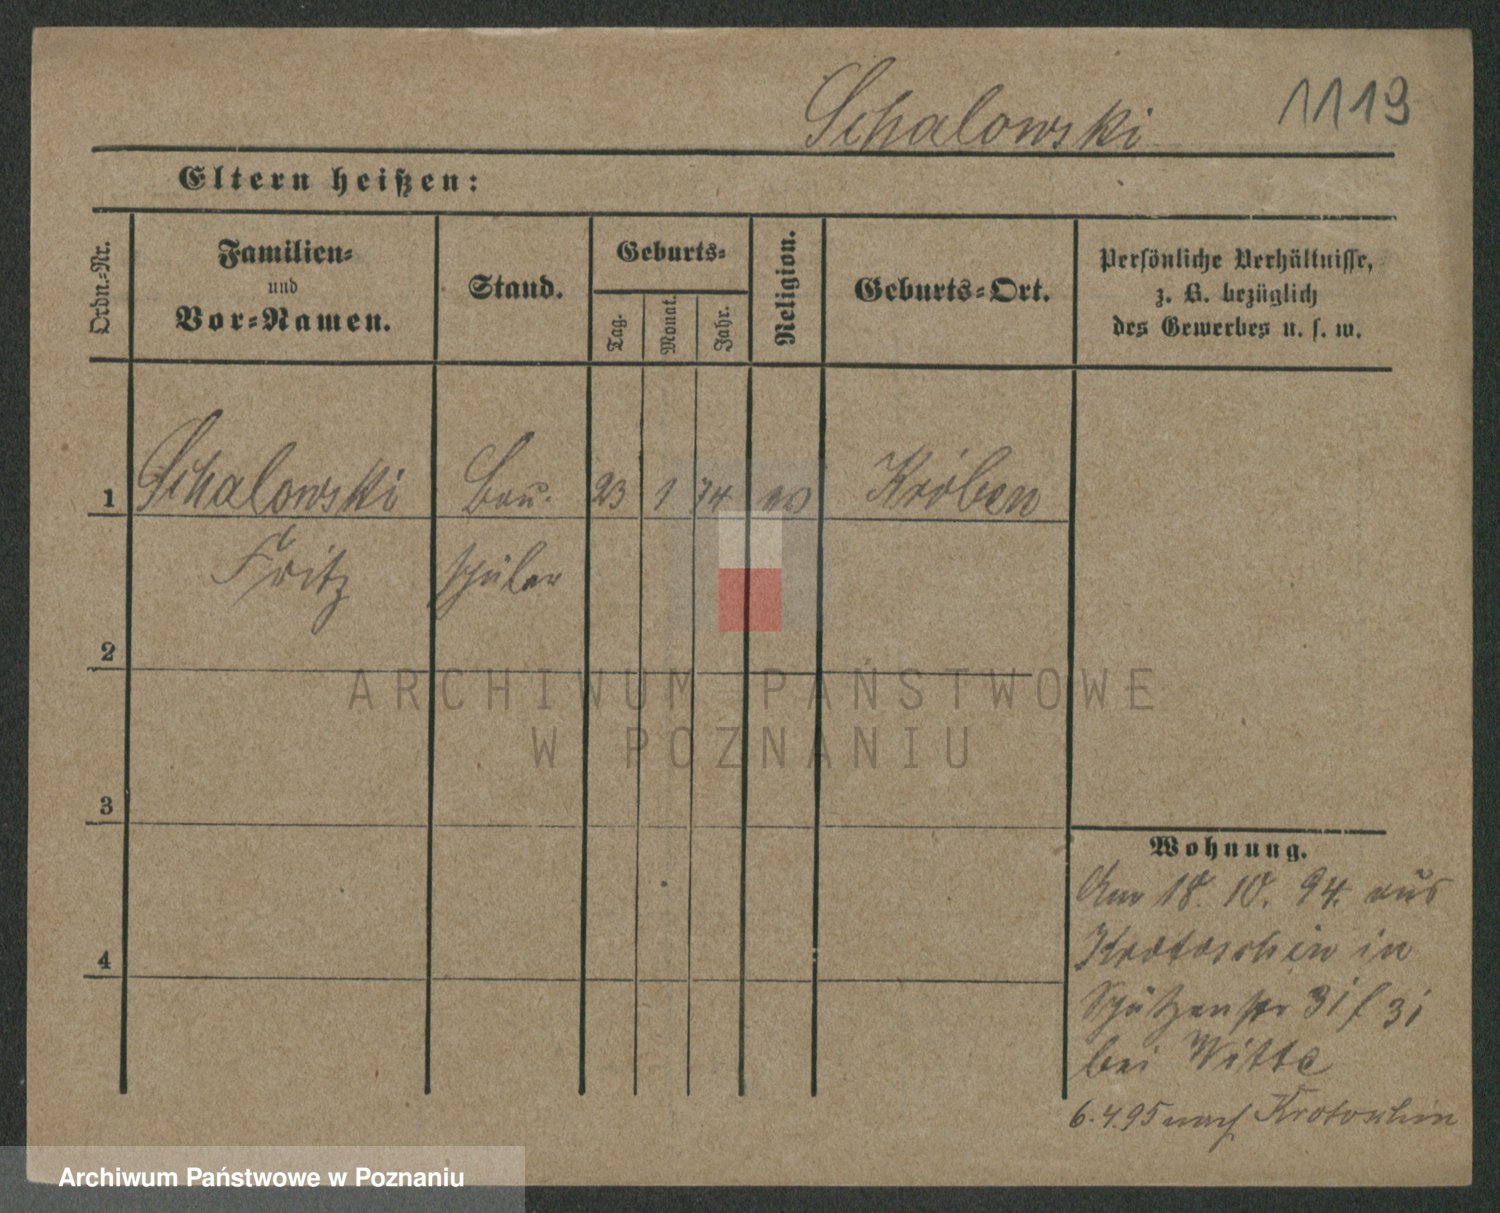 Schalowski 1119
Eltern heißen:
Ordn.-Nr.
Familien-
und
Vor-Namen.
Stand.
Geburts-
Tag.
Monat.
Jahr.
Religion.
Geburts-Ort.
Persönliche Verhältnisse,
z. B. bezüglich
des Gewerbes u. s. w.
1 Schalowski Bau. 23 1 74 ev Kröben
Fritz schüler
2
3
4
Wohnung.
Am 18. 10. 94. aus
Krotoschin in
Schützenstr 31 f 3i
bei Witte
6.4.95 nach Krotoschin
ARCHIWUM PAŃSTWOWE
W POZNANIU
Archiwum Państwowe w Poznaniu